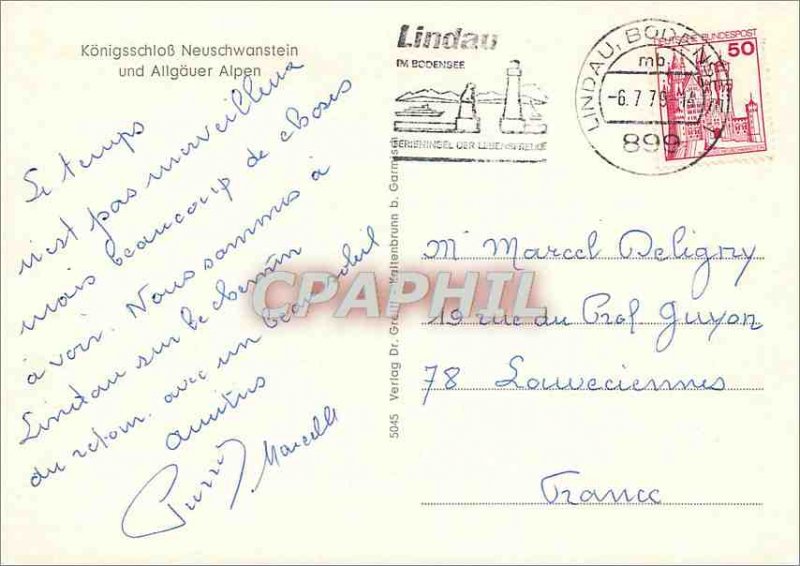 Königsschloß Neuschwanstein
und Allgäuer Alpen
Le temps
n'est pas merveilleux
mais beaucoup de choses
à voir. Nous sommes à
Lindau sur le chemin
du retour. avec un beau soleil
amitiés
Marcelle
5045 Verlag Dr. Kaltenbrunn b. Garmisch
Lindau
IM BODENSEE
FERIENINSEL DER LEBENSFREUDE
LINDAU, BODENSEE
mb
-6.7.79
899
DEUTSCHE BUNDESPOST
50
Mr Marcel Deligny
19 rue du Prof Guyon
78 Louveciennes
France
CPAPHIL